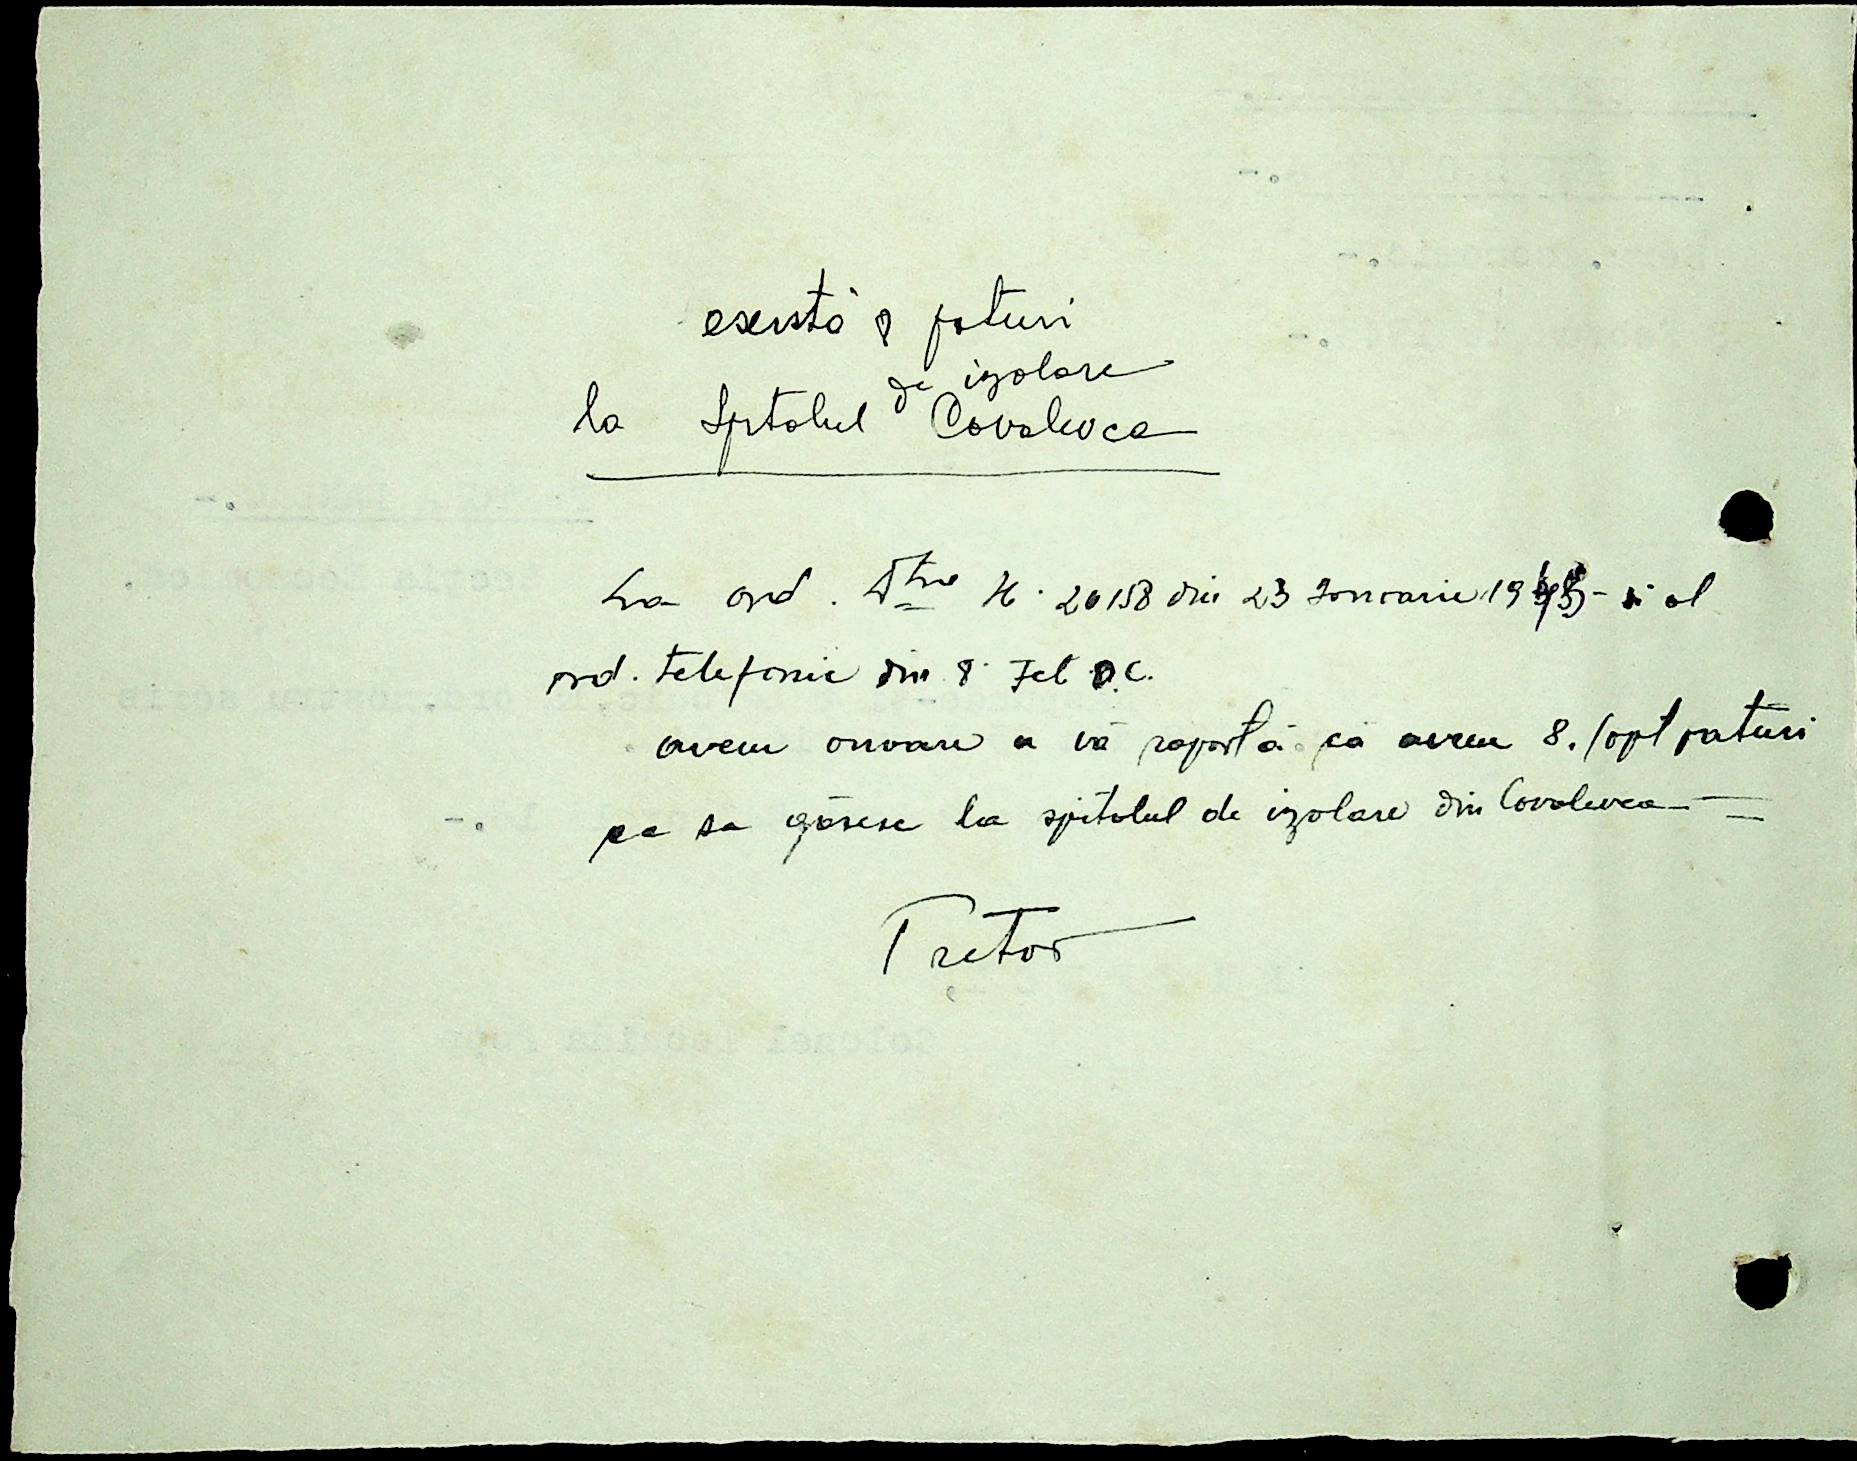 există 8 paturi
de izolare
la Spitalul Covaleuca
La ord. Dtră N. 20158 din 23 Ianuarie 1943 - si al
ord. telefonic din 8 Feb a.c.
avem onoare a vă raportă că avem 8. /opt paturi
ca sa găsesc la spitalul de izolare din Covaleuca
Pretor